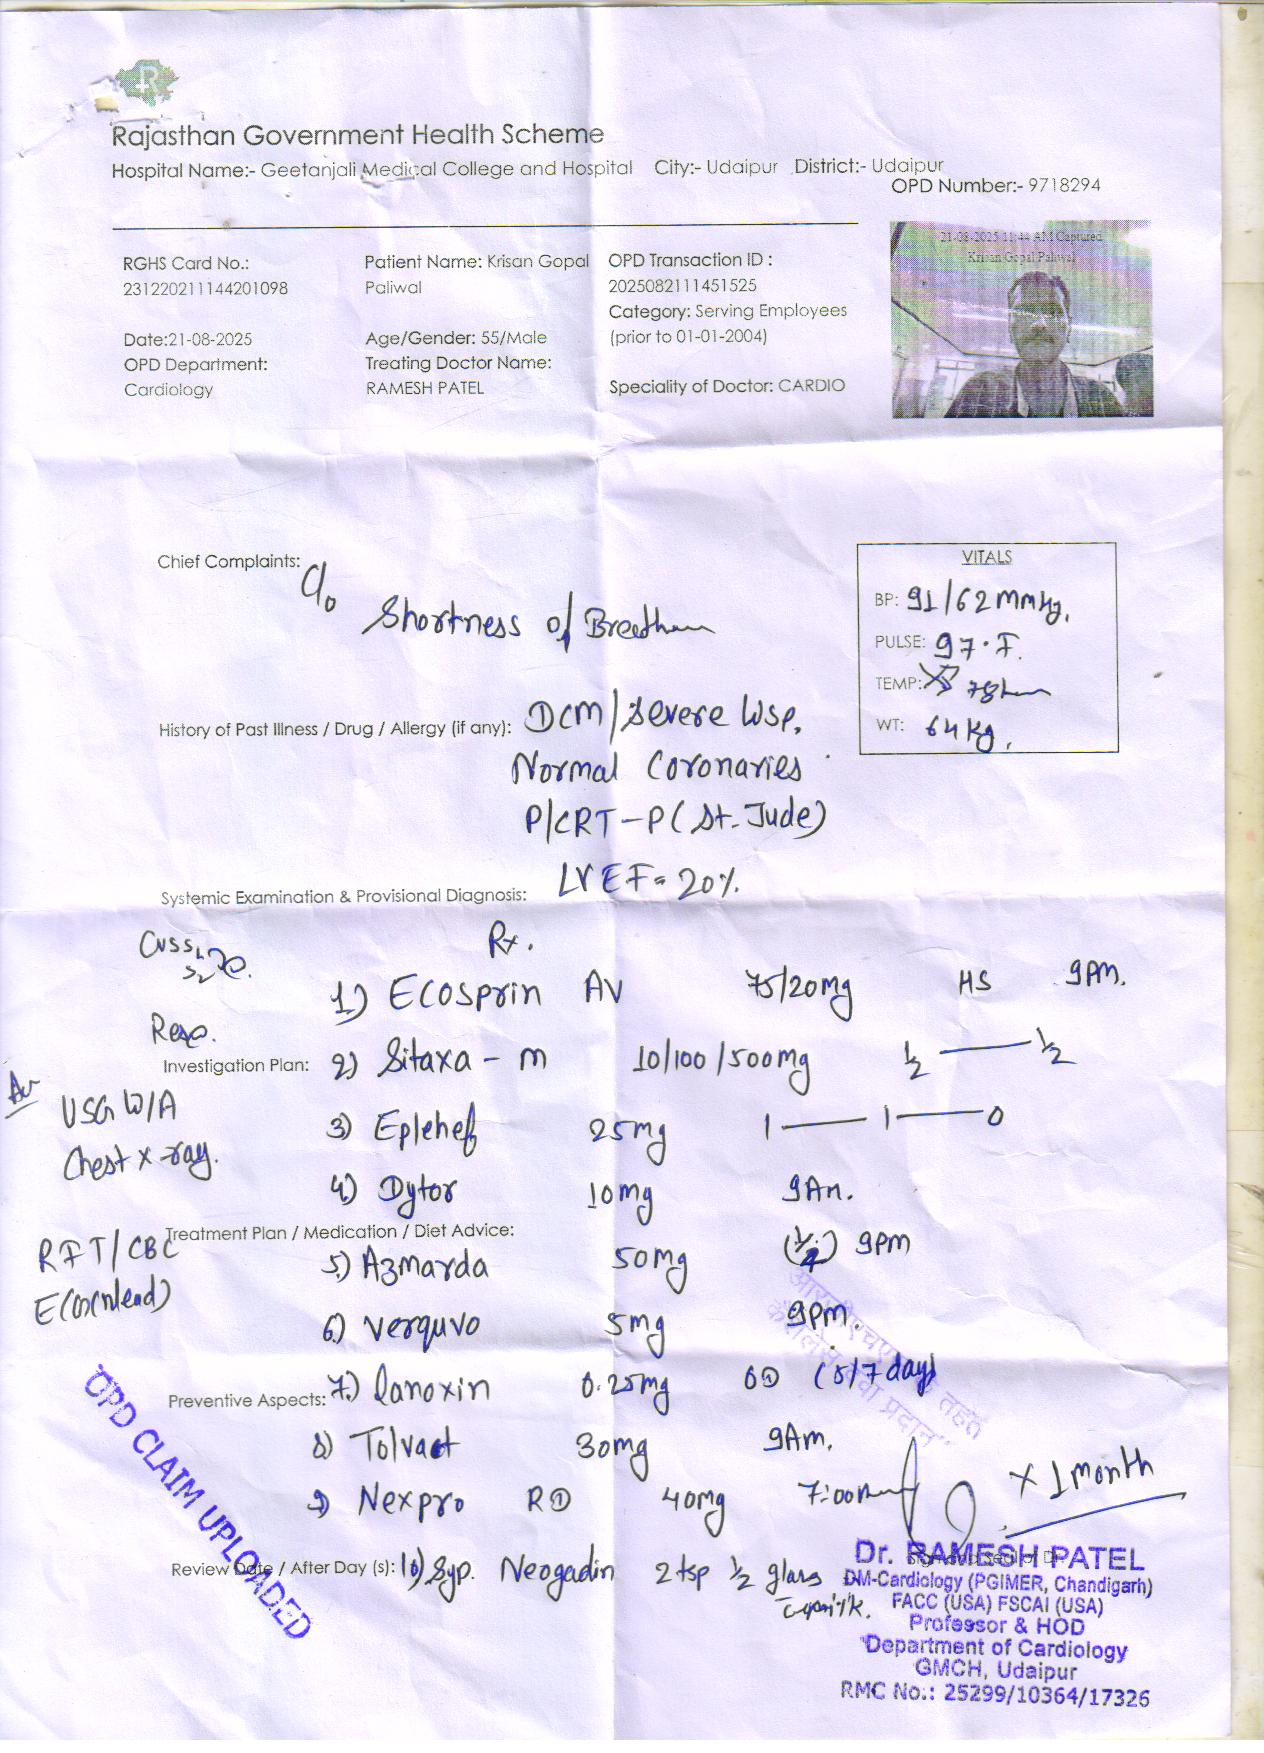 Rajasthan Government Health Scheme
Hospital Name:- Geetanjali Medical College and Hospital City:- Udaipur District:- Udaipur
OPD Number:- 9718294
RGHS Card No.:
231220211144201098
Patient Name: Krisan Gopal
Paliwal
OPD Transaction ID :
2025082111451525
Category: Serving Employees
(prior to 01-01-2004)
Date:21-08-2025
OPD Department:
Cardiology
Age/Gender: 55/Male
Treating Doctor Name:
RAMESH PATEL
Speciality of Doctor: CARDIO
21-08-2025 11:44 AM Captured
Krisan Gopal Paliwal
Chief Complaints: C/o
Shortness of
VITALS
BP: 91/62 mmHg.
PULSE: 97
TEMP:
WT: 64 kg.
History of Past Illness / Drug / Allergy (if any): DCM/Severe
Normal Coronaries
P/CRT-P (St. Jude)
LVEF= 20%
Systemic Examination & Provisional Diagnosis:
Rx.
1) Ecosprin AV 75/20mg HS 9AM.
Investigation Plan: 2) Sitaxa - m 10/100/500mg ½ — ½
USG W/A
Chest x-ray.
3) Eplehef 25mg 1 — 1 — 0
4) Dytor 10mg 9AM.
Treatment Plan / Medication / Diet Advice:
RFT/CBC
5) Azmarda 50mg 9pm
6) Verquvo 5mg 9pm.
Preventive Aspects: 7) Lanoxin 0.25mg OD (5/7 days)
8) Tolvact 30mg 9Am.
9) Nexpro RD 40mg 7:00
x 1 month
Review Date / After Day (s): 10) Syp. Neogadin 2 tsp ½ glass
OPD CLAIM UPLOADED
Dr. RAMESH PATEL
DM-Cardiology (PGIMER, Chandigarh)
FACC (USA) FSCAI (USA)
Professor & HOD
Department of Cardiology
GMCH, Udaipur
RMC No.: 25299/10364/17326